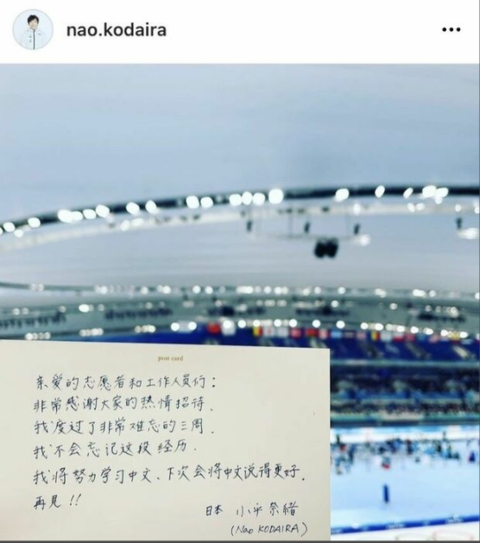 nao.kodaira
post card
亲爱的志愿者和工作人员们：
非常感谢大家的热情招待.
我度过了非常难忘的三周.
我不会忘记这段经历.
我将努力学习中文、下次会将中文说得更好.
再見!!
日本 小平奈緒
(Nao KODAIRA)